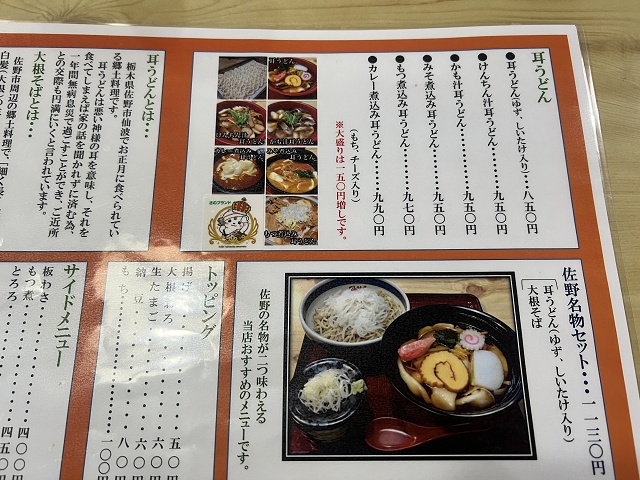 耳うどん
●耳うどん(ゆず、しいたけ入り)‥八五〇円
●けんちん汁耳うどん‥‥‥‥九五〇円
●かも汁耳うどん‥‥‥‥‥‥九五〇円
●みそ煮込み耳うどん‥‥‥‥九五〇円
●もつ煮込み耳うどん‥‥‥‥九七〇円
●カレー煮込み耳うどん‥‥‥九九〇円
(もち、チーズ入り)
※大盛りは一五〇円増しです。
耳うどん
けんちん汁
耳うどん
かも汁耳うどん
カレー煮込み
耳うどん
みそ煮込み
耳うどん
さのブランド
もつ煮込み
耳うどん
耳うどんとは・・・
栃木県佐野市仙波でお正月に食べられてい
る郷土料理です。
耳うどんは悪い神様の耳を意味し、それを
食べてしまえば家の話を聞かれずに済む為、
一年間無病息災で過ごすことができ、ご近所
との交際も円満にいくと言われています。
大根そばとは・・・
佐野市周辺の郷土料理で、「細く長く
佐野名物セット・・・一一三〇円
耳うどん(ゆず、しいたけ入り)
大根そば
佐野の名物が二つ味わえる
当店おすすめのメニューです。
トッピング
揚げ
大根おろ
生たまご 五〇円
納豆 六〇円
もち 八〇
一〇〇円
サイドメニュー
板わさ
もつ煮 四〇〇
とろろ 四五〇